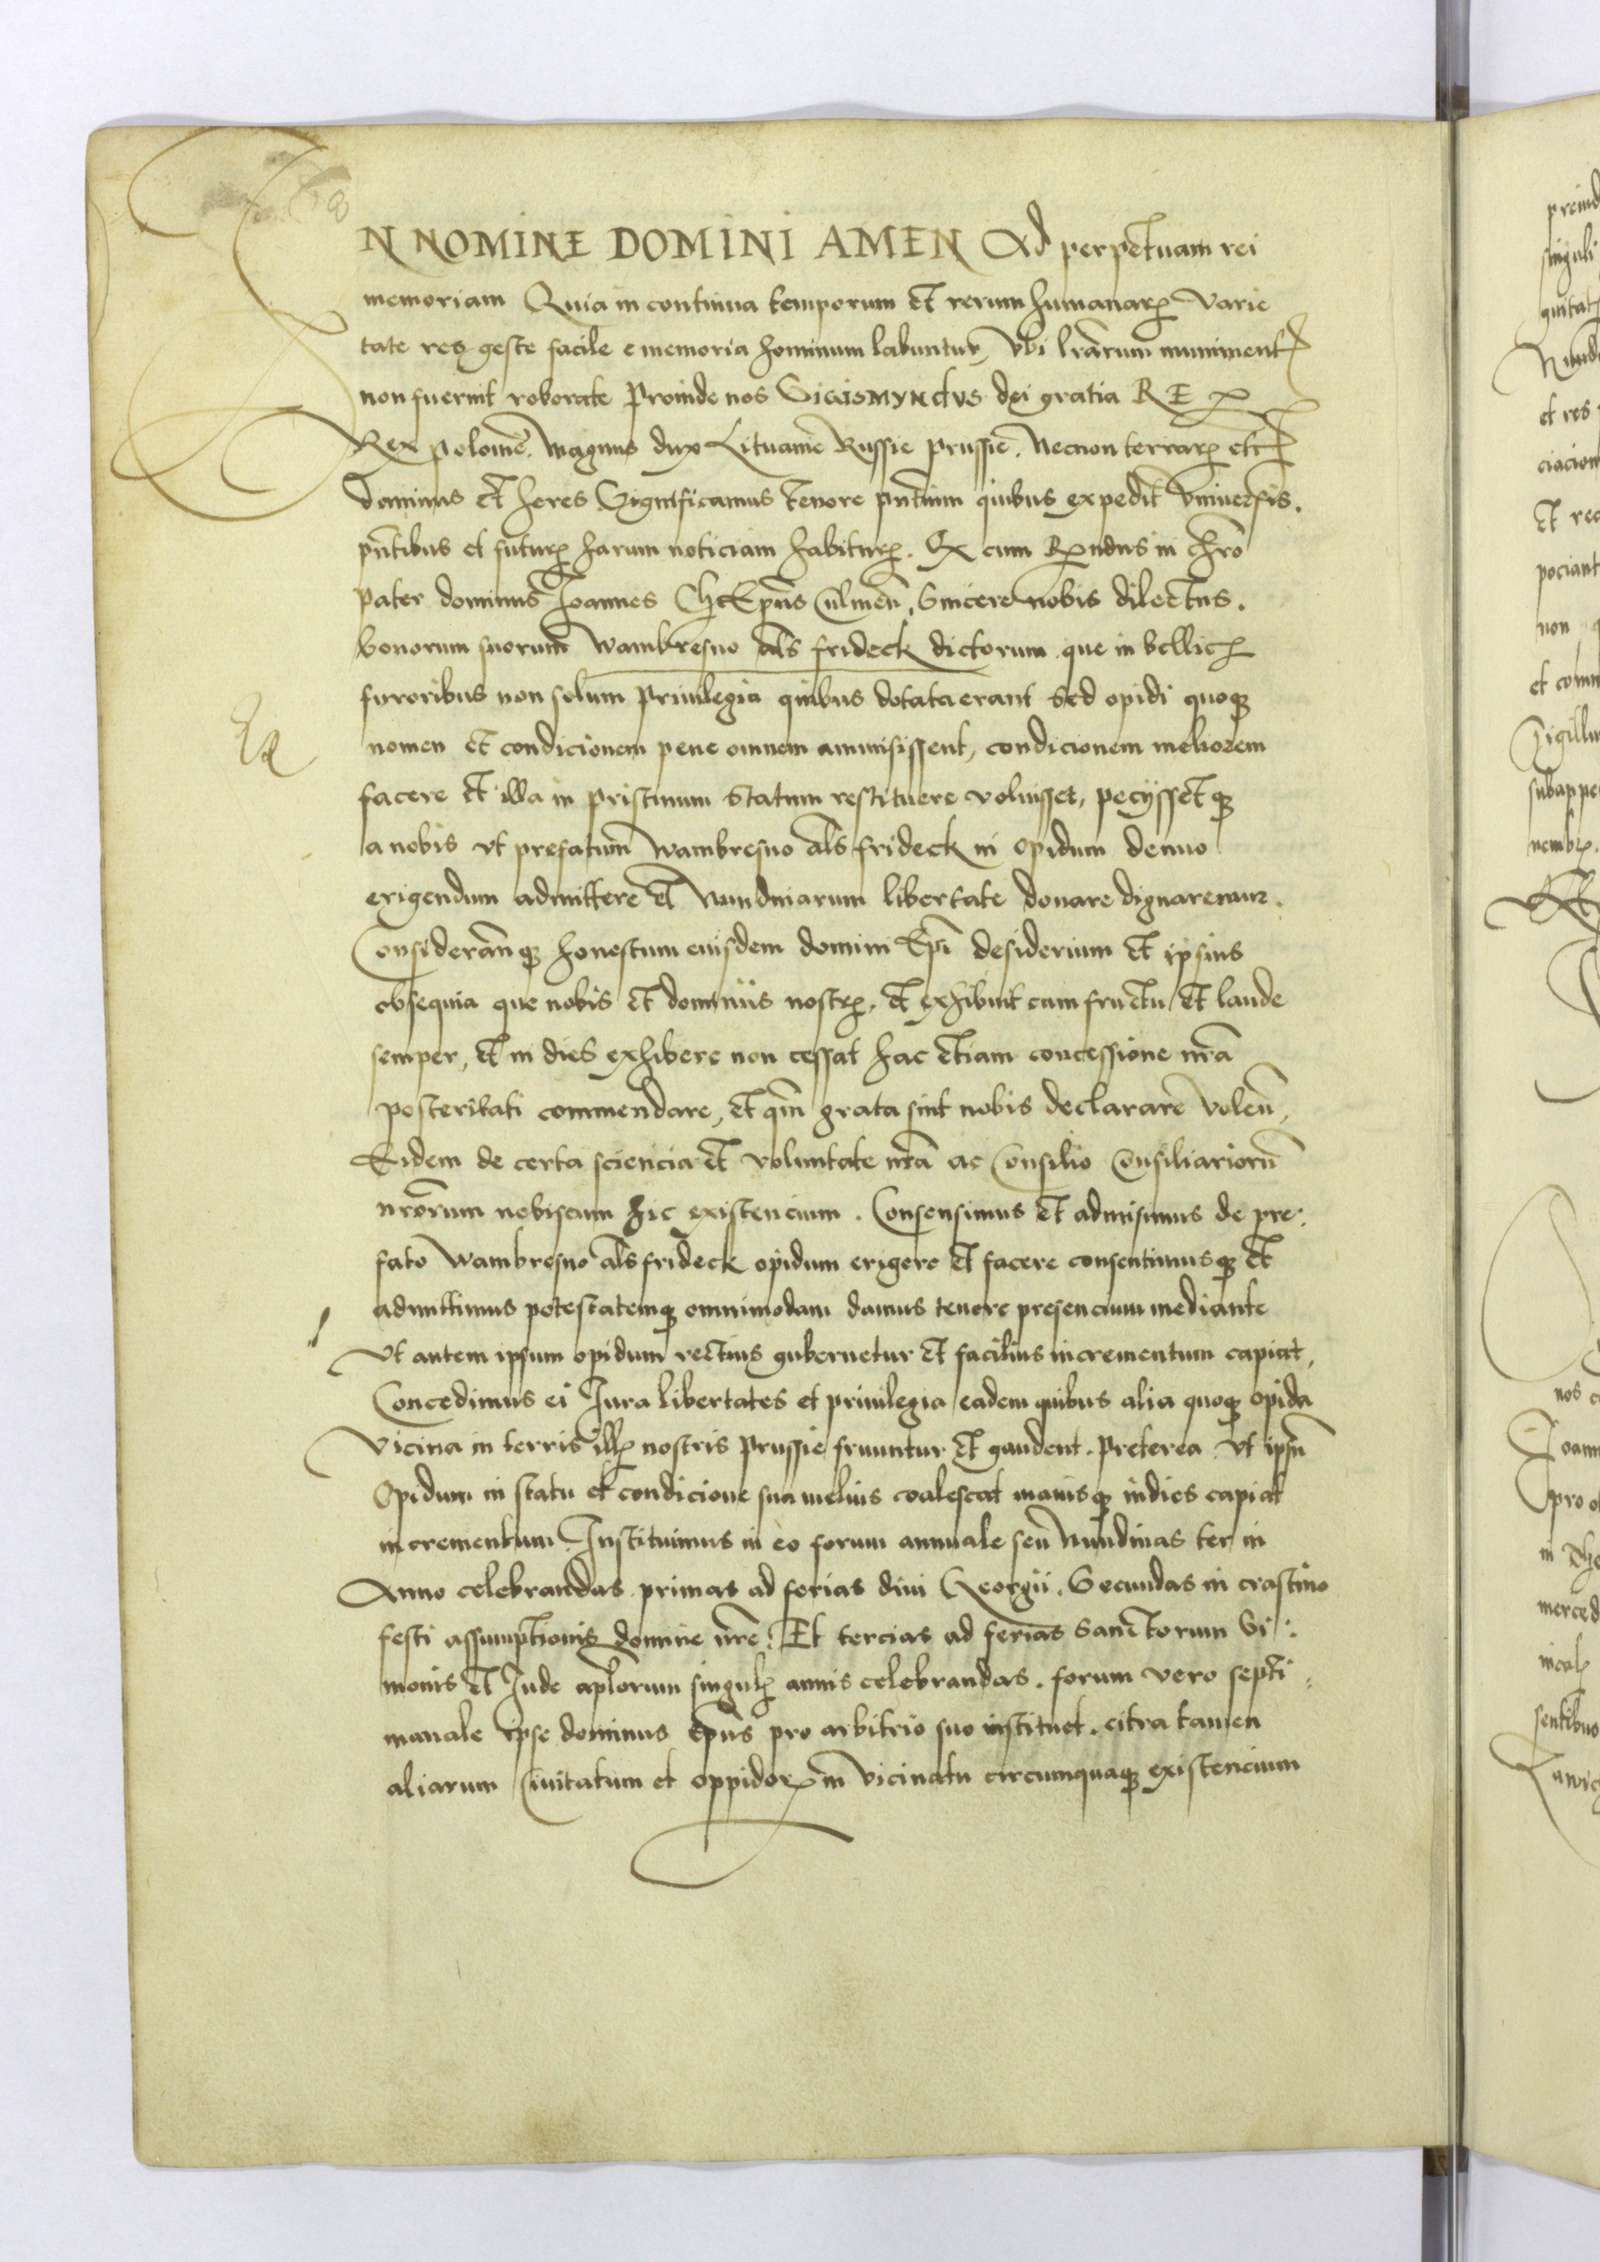 IN NOMINE DOMINI AMEN Ad perpetuam rei
memoriam Quia in continua temporum et rerum humanarꝝ varie
tate res geste facile e memoria hominum labuntur, vbi lrārum muniment
non fuerint roborate Proinde nos SIGISMVNdVS dei gratia REX
Rex polonie. Magnus dux Lituanie Russie prussie. Necnon terrarꝝ etc
dominus et heres Significamus tenore pn̄tium quibus expedit vniuersis.
pn̄tibus et futurꝝ harum noticiam habiturꝝ. Qꝫ cum Rn̄dus in chrō
pater dominus Joannes Ep̄us Culmeñ. Sincere nobis dilectus.
bonorum suorum wambresno al̄s frideck dictorum que in bellicꝫ
furoribus non solum priuilegia quibus dotata erant sed opidi quoqꝫ
nomen et condicionem pene omnem ammisissent, condicionem meliorem
facere et illa in pristinum statum restituere voluisset, pecyssetqꝫ
a nobis vt prefatum wambresno al̄s frideck in opidum denuo
erigendum admittere et Nundinarum libertate donare dignaremur.
Considerān̄qꝫ honestum euisdem domini Ep̄i desiderium et ipsius
obsequia que nobis et dominiis nostrꝫ. et exhibuit cum fructu et laude
semper, et in dies exhibere non cessat hac etiam concessione nrā
posteritati commendare, et qm̄ grata sint nobis declarare voleñ,
Eidem de certa sciencia et voluntate nrā ac Consilio Consiliariorū
nrōrum nobiscum hic existencium. Consensimus et admisimus de pre
fato wambresno al̄s frideck opidum erigere et facere consentimusqꝫ et
admittimus potestatemqꝫ omnimodam damus tenore presencium mediante
vt autem ipsum opidum rectius gubernetur et facilius incrementum capiat,
Concedimus ei Jura libertates et priuilegia eadem quibus alia quoqꝫ opida
vicina in terris illꝫ nostris Prussie fruuntur et gaudent. Preterea vt ipsū
Opidum in statu et condicione sua melius coalescat maiusqꝫ indies capiat
incrementum. Instituimus in eo forum annuale seu Nundinas ter in
Anno celebrandas primas ad ferias diui Georgii. Secundas in crastino
festi assumptionis domine nrē. Et tercias ad ferias Sanctorum Si
monis et Jude apl̄orum singulꝫ annis celebrandas. forum vero septi
manale ipse dominus Ep̄us pro arbitrio suo instituet. citra tamen
aliarum Ciuitatum et oppidorꝝ in vicinatu circumquaqꝫ existencium